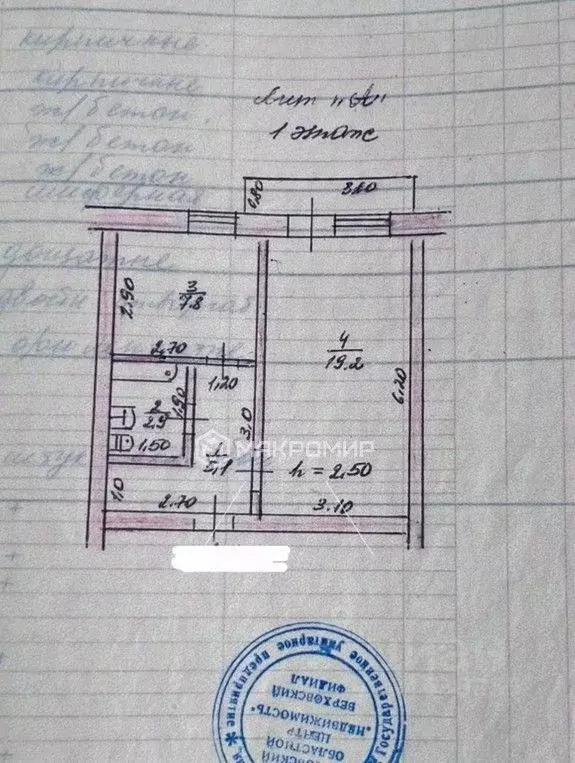 кирпичные
кирпичные
ж/бетон.
ж/бетон
ж/бетон
шиферная
дощатые
Лит "А"
1 этаж
0,80
3.10
2,90
3
7.8
2,70
1,20
4
19.2
6,20
2
2,9
1,90
1,50
3,0
1
5,1
МАКРОМИР
h = 2,50
1,0
2.70
3.10
Государственное унитарное предприятие
ОБЛАСТНОЙ
ЦЕНТР
"НЕДВИЖИМОСТЬ"
ВЕРХОВСКИЙ
ФИЛИАЛ